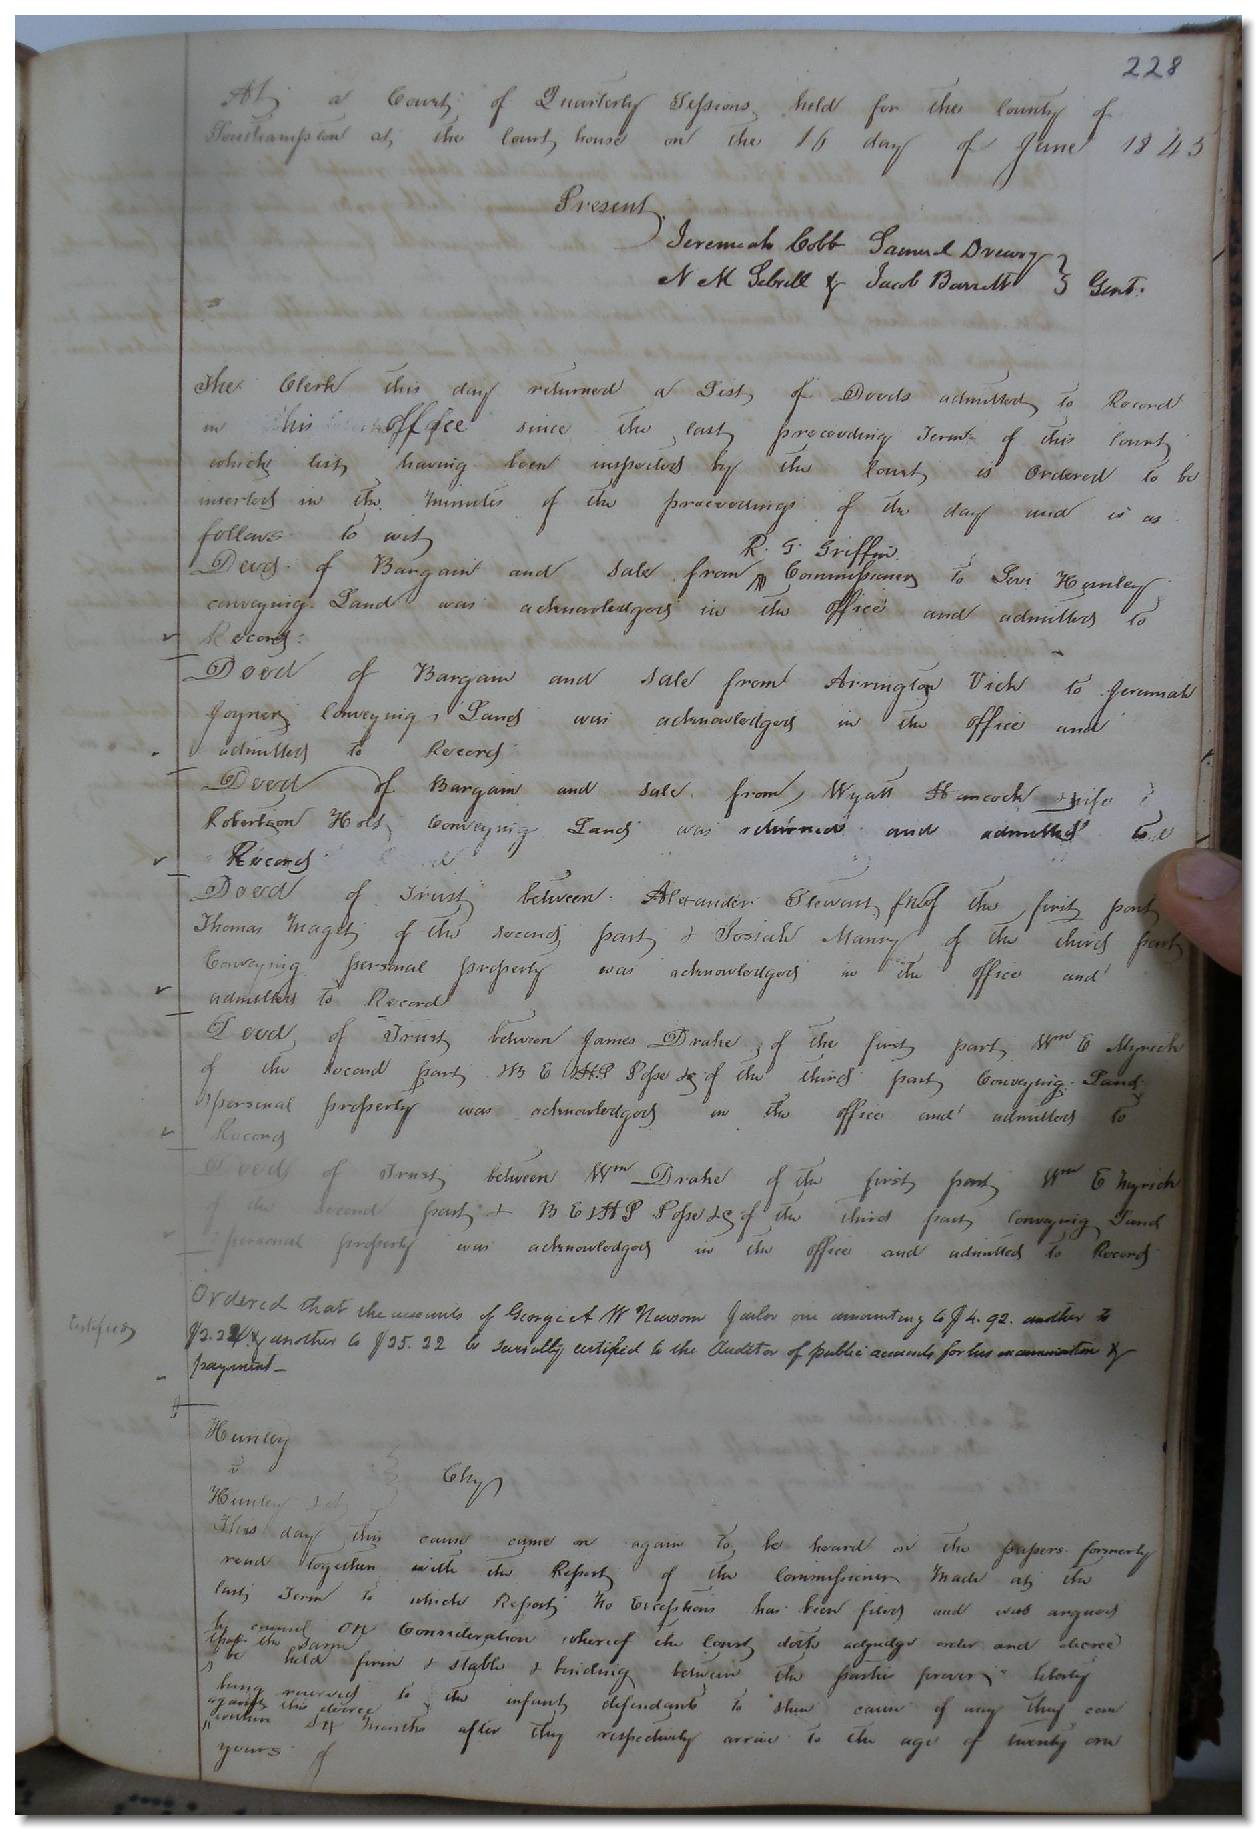 228
At a Court of Quarterly Sessions held for the County of
Southampton at the Court house on the 16 day of June 1845
Present
Jeremiah Cobb Samuel Drewry }
N M Sebrell & Jacob Barrett } Gent.
The Clerk this day returned a List of Deeds admitted to Record
in his office since the last preceeding Term of this Court
which list having been inspected by the Court is Ordered to be
inserted in the Minutes of the proceedings of the day and is as
follows to wit
R. G. Griffin
Deed of Bargain and Sale from Commissioner to Levi Hunley
conveying Land was acknowledged in the office and admitted to
Record:
Deed of Bargain and Sale from Arrington Vick to Jeremiah
Joyner Conveying Land was acknowledged in the office and
admitted to Record
Deed of Bargain and Sale from Wyatt Hancock wife
Robertson Holt Conveying Land was returned and admitted to
Record
Deed of Trust between Alexander Stewart of the first part
Thomas Maget of the second part & Josiah Manry of the third part
Conveying personal property was acknowledged in the office and
admitted to Record
Deed of Trust between James Drake of the first part Wm E Myrick
of the second part B E & H P Pope &c of the third part Conveying Land
& personal property was acknowledged in the office and admitted to
Record
Deed of Trust between Wm Drake of the first part Wm E Myrick
of the second part & B E & H P Pope &c of the third part Conveying Land
& personal property was acknowledged in the office and admitted to Record
Ordered that the accounts of George A W Newsom Jailor one amounting to $4.92. another to
Certified
& another to $35.22 be severally certified to the Auditor of public accounts for his examination &
payment
Hunley
v } Chy
Hunley
This day this cause came on again to be heard on the papers formerly
read together with the Report of the Commissioner Made at the
last Term to which Report No Exceptions has been filed and was argued
by counsel On Consideration whereof the Court doth adjudge order and decree
that the same
be held firm & stable & binding between the parties forever liberty
being reserved to the infant defendants to shew cause if any they can
against this decree
within six months after they respectively arrive to the age of twenty one
years